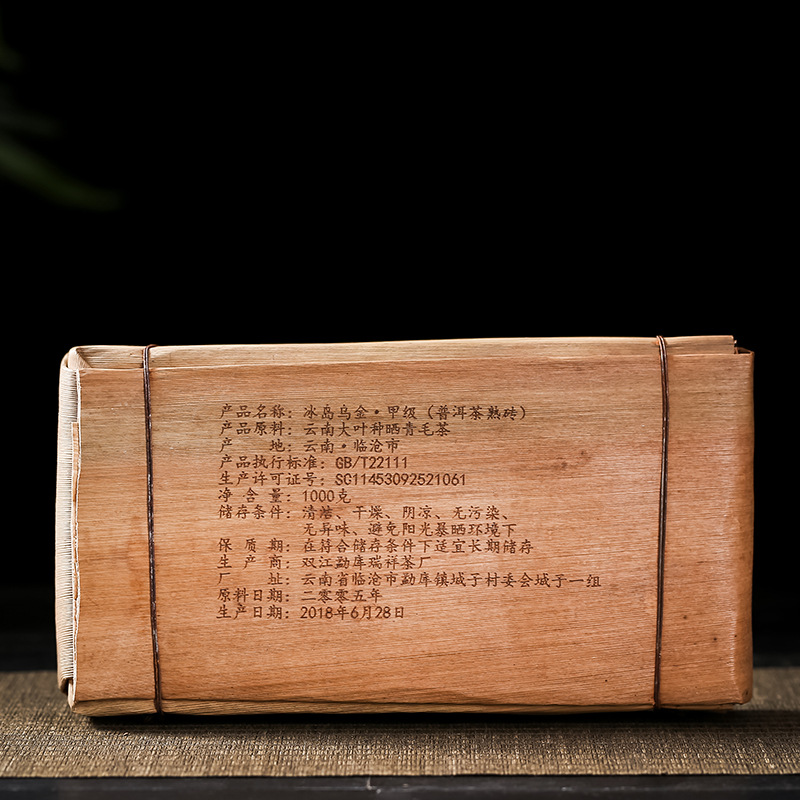 产品名称：冰岛乌金·甲级（普洱茶熟砖）
产品原料：云南大叶种晒青毛茶
产    地：云南·临沧市
产品执行标准：GB/T22111
生产许可证号：SC11453092521061
净 含 量：1000克
储存条件：清洁、干燥、阴凉、无污染、
无异味、避免阳光暴晒环境下
保 质 期：在符合储存条件下适宜长期储存
生 产 商：双江勐库瑞祥茶厂
厂    址：云南省临沧市勐库镇城子村委会城子一组
原料日期：二零零五年
生产日期：2018年6月28日